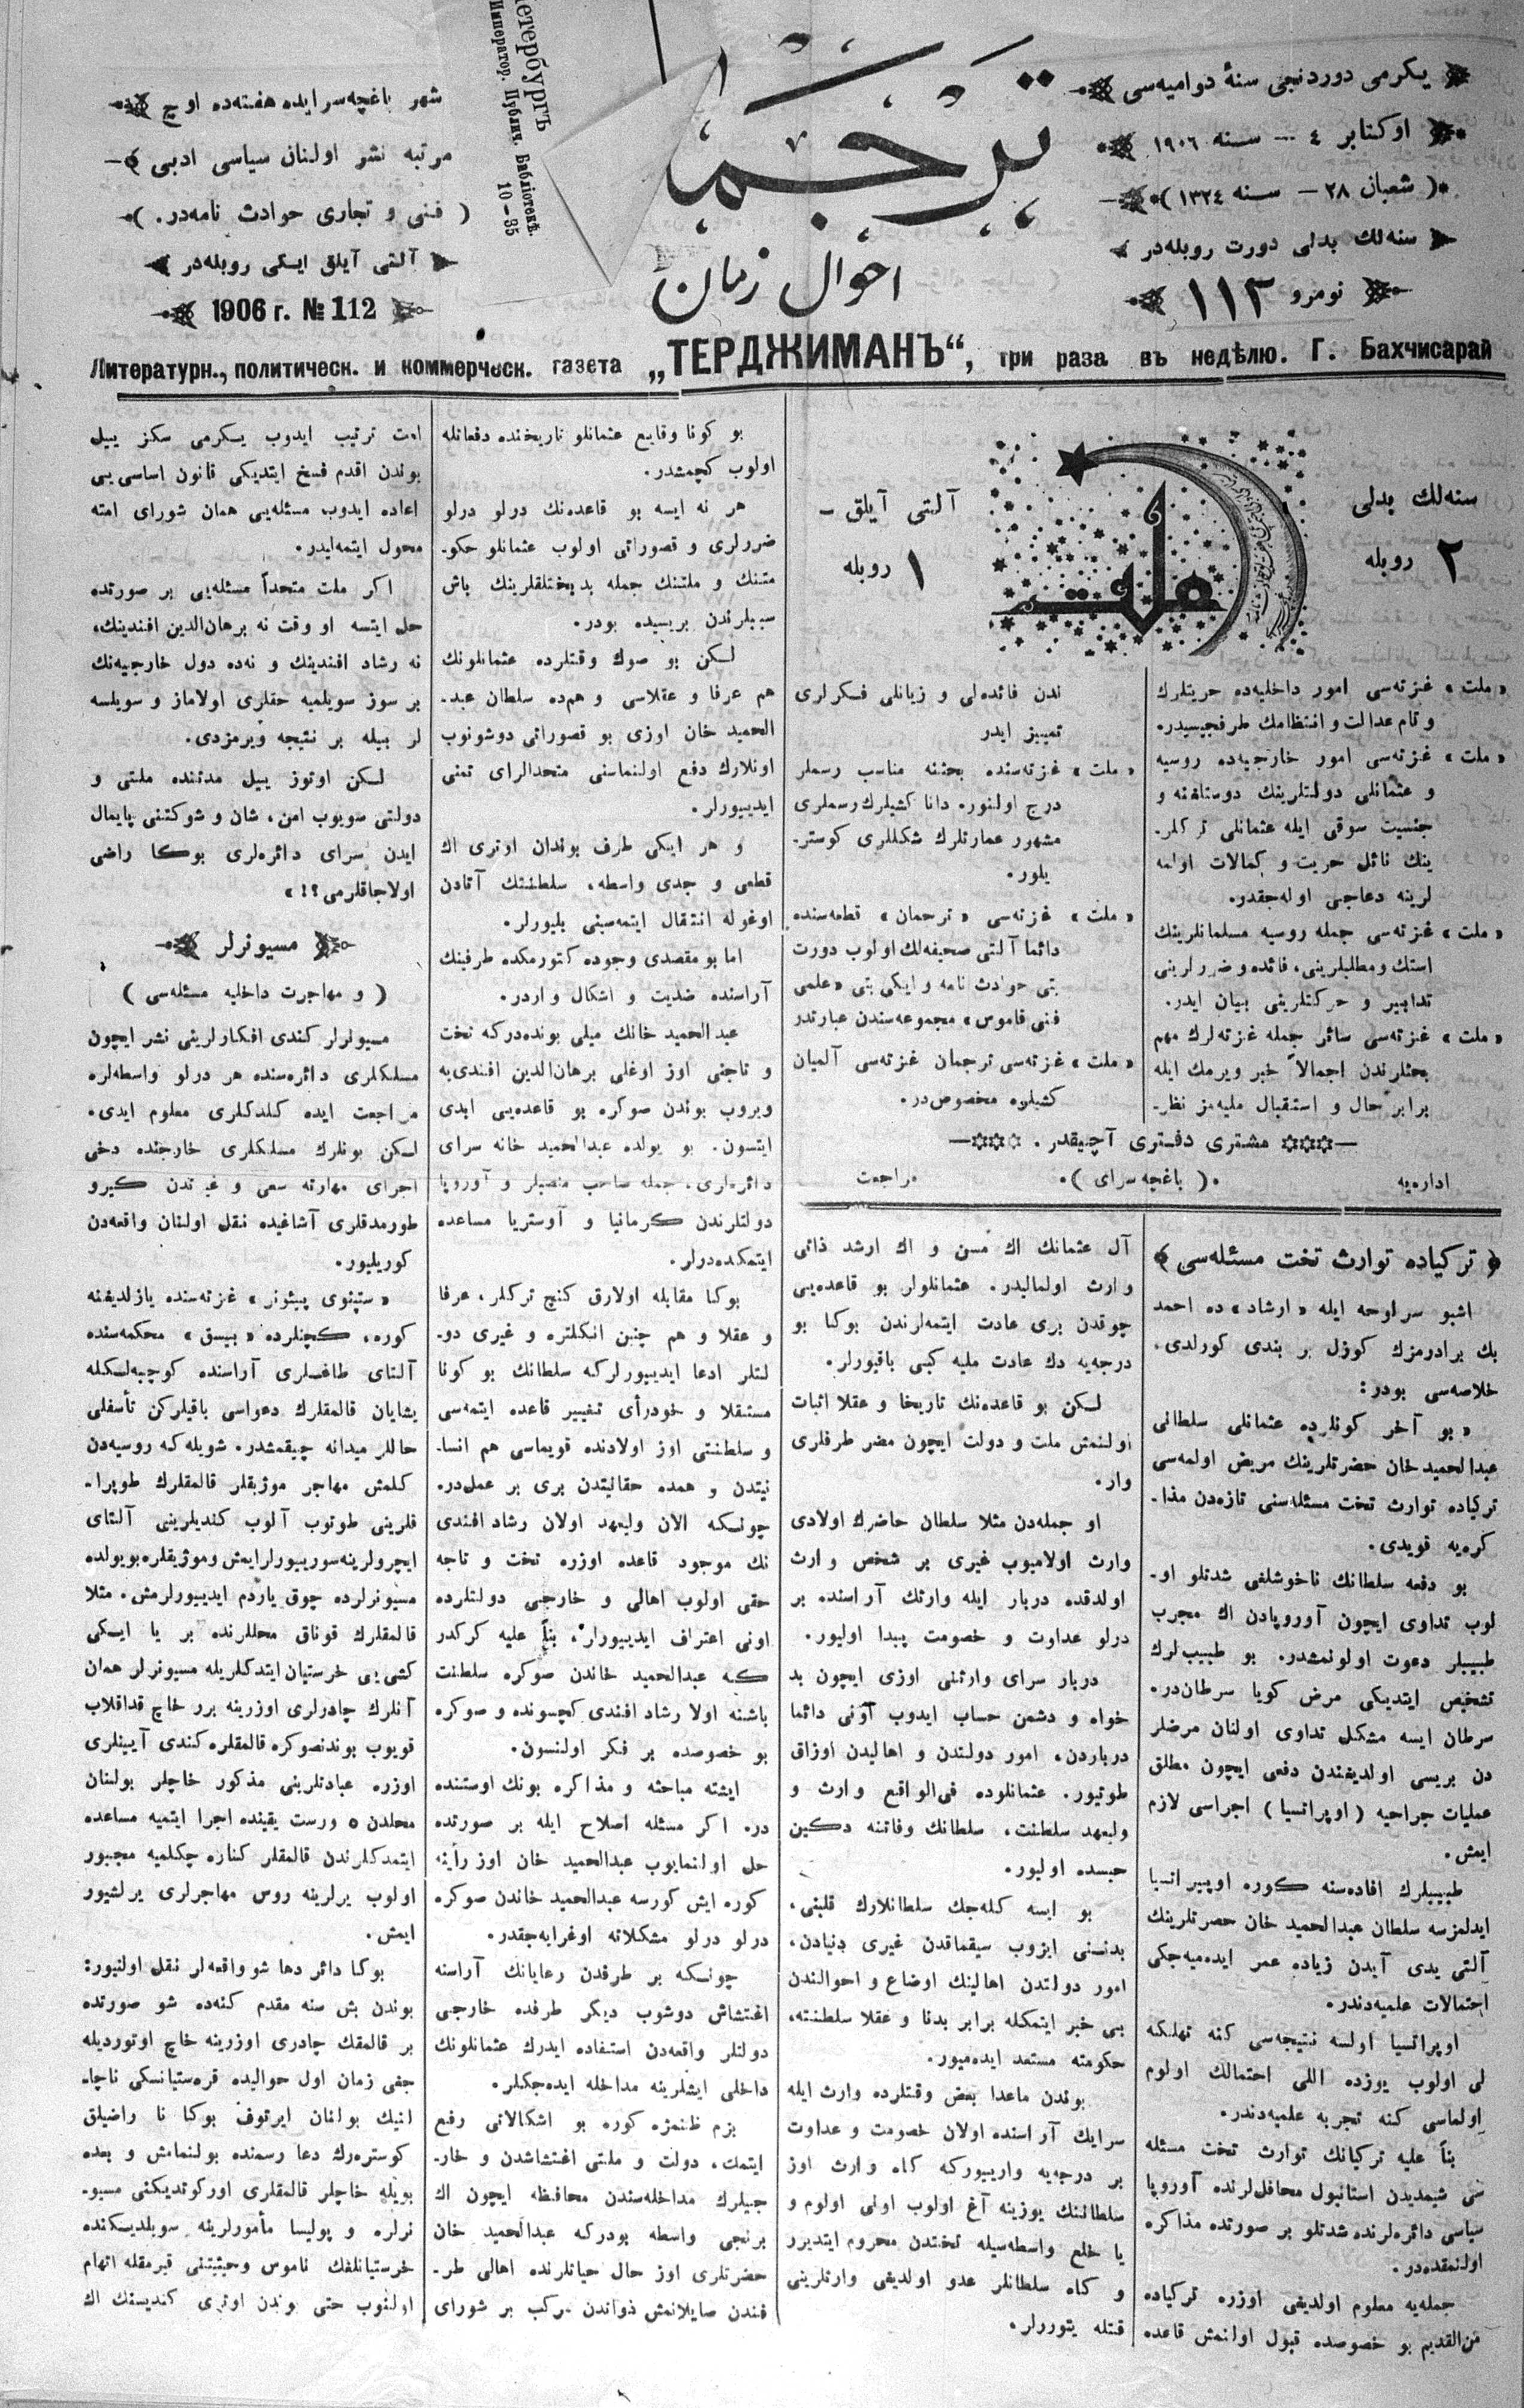 يكرمى دوردنجى سنهٔ دواميه‌سى
اوكتابر ٤ — سنه ١٩٠٦
( شعبان ٢٨ — سنه ١٣٢٤ )
سنه‌لك بدلى دورت روبله‌در
نومرو ١١٢
ترجمان
احوال زمان
Петербургъ
Император. Публич. Библіотекѣ.
10—35
شهر باغچه‌سرايده هفته‌ده اوچ
مرتبه نشر اولنان سياسى ادبى
( فنى و تجارى حوادث نامه‌در. )
آلتى آيلق ايكى روبله‌در
1906 г. № 112
Литературн., политическ. и коммерческ. газета „ТЕРДЖИМАНЪ“, три раза въ недѣлю. Г. Бахчисарай
سنه‌لك بدلى
٢ روبله
ملت
آلتى آيلق —
١ روبله
« ملت » غزته‌سى امور داخليه‌ده حريتلرك
و تام عدالت و انتظامك طرفجيسيدر.
« ملت » غزته‌سى امور خارجيه‌ده روسيه
و عثمانلى دولتلرينك دوستلغنه و
جنسيت سوقى ايله عثمانلى تركلر-
ينك نائل حريت و كمالات اولمه
لرينه دعاجى اوله‌جقدر.
« ملت » غزته‌سى جمله روسيه مسلمانلرينك
استك و مطلبلرينى، فائده و ضررلرينى
تدابير و حركتلرينى بيان ايدر.
« ملت » غزته‌سى سائر جمله غزته‌لرك مهم
بحثلرندن اجمالاً خبر ويرمك ايله
برابر حال و استقبال مليه‌مز نظر-
ندن فائده‌لى و زيانلى فكرلرى
تمييز ايدر
« ملت » غزته‌سنده بحثنه مناسب رسملر
درج اولنور. دانا كشيلرك رسملرى
مشهور عمارتلرك شكللرى كوستر-
يلور.
« ملت » غزته‌سى « ترجمان » قطعه‌سنده
دائما آلتى صحيفه‌لك اولوب دورت
بتى حوادث نامه و ايكى بتى « علمى
فنى قاموس » مجموعه‌سندن عبارتدر
« ملت » غزته‌سى ترجمان غزته‌سى آلميان
كشيلره مخصوص‌در.
مشترى دفترى آچيقدر.
اداره‌يه ( باغچه سراى ) مراجعت
﴿ تركياده توارث تخت مسئله‌سى ﴾
اشبو سراوحه ايله « ارشاد » ده احمد
بك برادرمزك كوزل بر بندى كورلدى.
خلاصه‌سى بودر:
« بو آخر كونلرده عثمانلى سلطانى
عبدالحميد خان حضرتلرينك مريض اولمه‌سى
تركياده توارث تخت مسئله‌سنى تازه‌دن مذا-
كره‌يه قويدى.
بو دفعه سلطانك ناخوشلغى شدتلو او-
لوب تداوى ايچون آوروپادن اك مجرب
طبيبلر دعوت اولونمشدر. بو طبيب‌لرك
تشخيص ايتديكى مرض كويا سرطان‌در.
سرطان ايسه مشكل تداوى اولنان مرضلر
دن بريسى اولديغندن دفعى ايچون مطلق
عمليات جراحيه ( اوپراتسيا ) اجراسى لازم
ايمش.
طبيبلرك افاده‌سنه كوره اوپيراتسيا
ايدلمزسه سلطان عبدالحميد خان حضرتلرينك
آلتى يدى آيدن زياده عمر ايده‌ميه‌جكى
احتمالات علميه‌دندر.
اوپراتسيا اولسه نتيجه‌سى كنه تهلكه
لى اولوب يوزده اللى احتمالك اولوم
اولماسى كنه تجربه علميه‌دندر.
بناً عليه تركيانك توارث تخت مسئله
سى شيمديدن استانبول محافل‌لرنده آوروپا
سياسى دائره‌لرنده شدتلو بر صورتده مذاكره
اولنمقده‌در.
جمله‌يه معلوم اولديغى اوزره تركياده
من‌القديم بو خصوصده قبول اولنمش قاعده
آل عثمانك اك مسن و اك ارشد ذاتى
وارث اولماليدر. عثمانلولر بو قاعده‌يى
چوقدن برى عادت ايتمه‌لرندن بوكا بو
درجه‌يه دك عادت مليه كبى باقيورلر.
لكن بو قاعده‌نك تاريخا و عقلا اثبات
اولنمش ملت و دولت ايچون مضر طرفلرى
وار.
او جمله‌دن مثلا سلطان حاضرك اولادى
وارث اولاميوب غيرى بر شخص وارث
اولدقده دربار ايله وارثك آراسنده بر
درلو عداوت و خصومت پيدا اوليور.
دربار سراى وارثنى اوزى ايچون بد
خواه و دشمن حساب ايدوب آونى دائما
درباردن، امور دولتدن و اهاليدن اوزاق
طوتيور. عثمانلوده فى‌الواقع وارث و
وليعهد سلطنت، سلطانك وفاتنه دكين
حبسده اوليور.
بو ايسه كله‌جك سلطانلارك قلبنى،
بدنى ايزوب سيقماقدن غيرى دنيادن،
امور دولتدن اهالينك اوضاع و احوالندن
بى خبر ايتمكله برابر بدنا و عقلا سلطنته،
حكومته مستعد ايده‌ميور.
بوندن ماعدا بعض وقتلرده وارث ايله
سرايك آراسنده اولان خصومت و عداوت
بر درجه‌يه وارييوركه كاه وارث اوز
سلطاننك يوزينه آغ اولوب اونى اولوم و
يا خلع واسطه‌سيله تختدن محروم ايتديرو
و كاه سلطانلر عدو اولديغى وارثلرينى
قتله يتوررلر.
بو كونا وقايع عثمانلو تاريخنده دفعاتله
اولوب كچمشدر.
هر نه ايسه بو قاعده‌نك درلو درلو
ضررلرى و قصوراتى اولوب عثمانلو حكو-
متنك و ملتنك جمله بدبختلقلرينك باش
سببلرندن بريسيده بودر.
لكن بو صوك وقتلرده عثمانلونك
هم عرفا و عقلاسى و هم‌ده سلطان عبد-
الحميد خان اوزى بو قصوراتى دوشونوب
اونلارك دفع اولنماسنى متحدالراى تمنى
ايدييورلر.
و هر ايكى طرف بوندان اوترى اك
قطعى و جدى واسطه، سلطنتك آتادن
اوغوله انتقال ايتمه‌سينى بليورلر.
اما بو مقصدى وجوده كتورمكده طرفينك
آراسنده ضديت و اشكال واردر.
عبدالحميد خانك ميلى بونده‌دركه تخت
و تاجنى اوز اوغلى برهان‌الدين افندى‌يه
ويروب بوندن صوكره بو قاعده‌يى ابدى
ايتسون. بو يولده عبدالحميد خانه سراى
دائره‌لرى، جمله صاحب منصبلر و آوروپا
دولتلرندن كرمانيا و آوستريا مساعده
ايتمكده‌درلر.
بوكا مقابله اولارق كنج تركلر، عرفا
و عقلا و هم چنين انكلتره و غيرى دو-
لتلر ادعا ايدييورلركه سلطانك بو كونا
مستقلا و خودرأى تغيير قاعده ايتمه‌سى
و سلطنتى اوز اولادنده قويماسى هم انسا-
نيتدن و همده حقانيتدن برى بر عمل‌در.
چونكه الان وليعهد اولان رشاد افندى
نك موجود قاعده اوزره تخت و تاجه
حقى اولوب اهالى و خارجى دولتلرده
اونى اعتراف ايدييورلر، بناً عليه كركدر
كه عبدالحميد خاندن صوكره سلطنت
باشنه اولا رشاد افندى كچسونده و صوكره
بو خصوصده بر فكر اولنسون.
ايشته مباحثه و مذاكره بونك اوستنده
در. اكر مسئله اصلاح ايله بر صورتده
حل اولنمايوب عبدالحميد خان اوز رأينه
كوره ايش كورسه عبدالحميد خاندن صوكره
درلو درلو مشكلاته اوغرايه‌جقدر.
چونكه بر طرفدن رعايانك آراسنه
اغتشاش دوشوب ديكر طرفده خارجى
دولتلر واقعه‌دن استفاده ايدرك عثمانلونك
داخلى ايشلرينه مداخله ايده‌جكلر.
بزم ظنمزه كوره بو اشكالاتى رفع
ايتمك، دولت و ملتى اغتشاشدن و خار-
جيلرك مداخله‌سندن محافظه ايچون اك
برنجى واسطه بودركه عبدالحميد خان
حضرتلرى اوز حال حياتلرنده اهالى طر-
فندن صايلانمش ذواتدن مركب بر شوراى
امت ترتيب ايدوب يكرمى سكز ييل
بوندن اقدم فسخ ايتديكى قانون اساسى‌يى
اعاده ايدوب مسئله‌يى همان شوراى امته
محول ايتمه‌ليدر.
اكر ملت متحداً مسئله‌يى بر صورتده
حل ايتسه او وقت نه برهان‌الدين افندينك،
نه رشاد افندينك و نه‌ده دول خارجيه‌نك
بر سوز سويلميه حقلرى اولاماز و سويلسه
لر بيله بر نتيجه ويرمزدى.
لكن اوتوز ييل مدتنده ملتى و
دولتى سويوب امن، شان و شوكتنى پايمال
ايدن سراى دائره‌لرى بوكا راضى
اولاجاقلرمى؟! »
مسيونرلر
( و مهاجرت داخليه مسئله‌سى )
مسيونرلر كندى افكارلرينى نشر ايچون
مسلكلرى دائره‌سنده هر درلو واسطه‌لره
مراجعت ايده كلدكلرى معلوم ايدى.
لكن بونلرك مسلكلرى خارجنده دخى
اجراى مهارته سعى و غيرتدن كيرو
طورمدقلرى آشاغيده نقل اولنان واقعه‌دن
كوريليور.
« ستپنوى پيئونر » غزته‌سنده يازلديغنه
كوره، كچنلرده « بيسق » محكمه‌سنده
آلتاى طاغلرى آراسنده كوچبه‌لكله
يشايان قالمقلرك دعواسى باقيلركن تأسفلى
حاللر ميدانه چيقمشدر. شويله كه روسيه‌دن
كلمش مهاجر موژيقلر قالمقلرك طوپرا-
قلرينى طوتوب آلوب كنديلرينى آلتاى
ايچرولرينه سوريیورلر ايمش و موژيقلره بو يولده
مسيونرلرده چوق ياردم ايدييورلرمش. مثلا
قالمقلرك قوناق محللرنده بر يا ايكى
كشى‌يى خرستيان ايتدكلريله مسيونرلر همان
آنلرك چادرلرى اوزرينه برر خاچ قداقلاب
قويوب بوندنصوكره قالمقلره كندى آيينلرى
اوزره عبادتلرينى مذكور خاچلر بولنان
محلدن ٥ ورست يقينده اجرا ايتميه مساعده
ايتمدكلرندن قالمقلر كناره چكلميه مجبور
اولوب يرلرينه روس مهاجرلرى يرلشيور
ايمش.
بوكا دائر دها شو واقعه‌لر نقل اولنيور:
بوندن بش سنه مقدم كنه‌ده شو صورتده
بر قالمقك چادرى اوزرينه خاچ اوتورديله
جغى زمان اول حواليده قره‌ستيانسكى ناچا-
لنيك بولنان ايرتوف بوكا نا راضيلق
كوستره‌رك دعا رسمنده بولنمامش و بعده
بويله خاچلر قالمقلرى اوركوتديكنى مسيو-
نرلره و پوليسا مأمورلرينه سويلديكنده
خرستيانلغك ناموس و حيثيتنى قيرمقله اتهام
اولنوب حتى بوندن اوترى كنديسنك اك